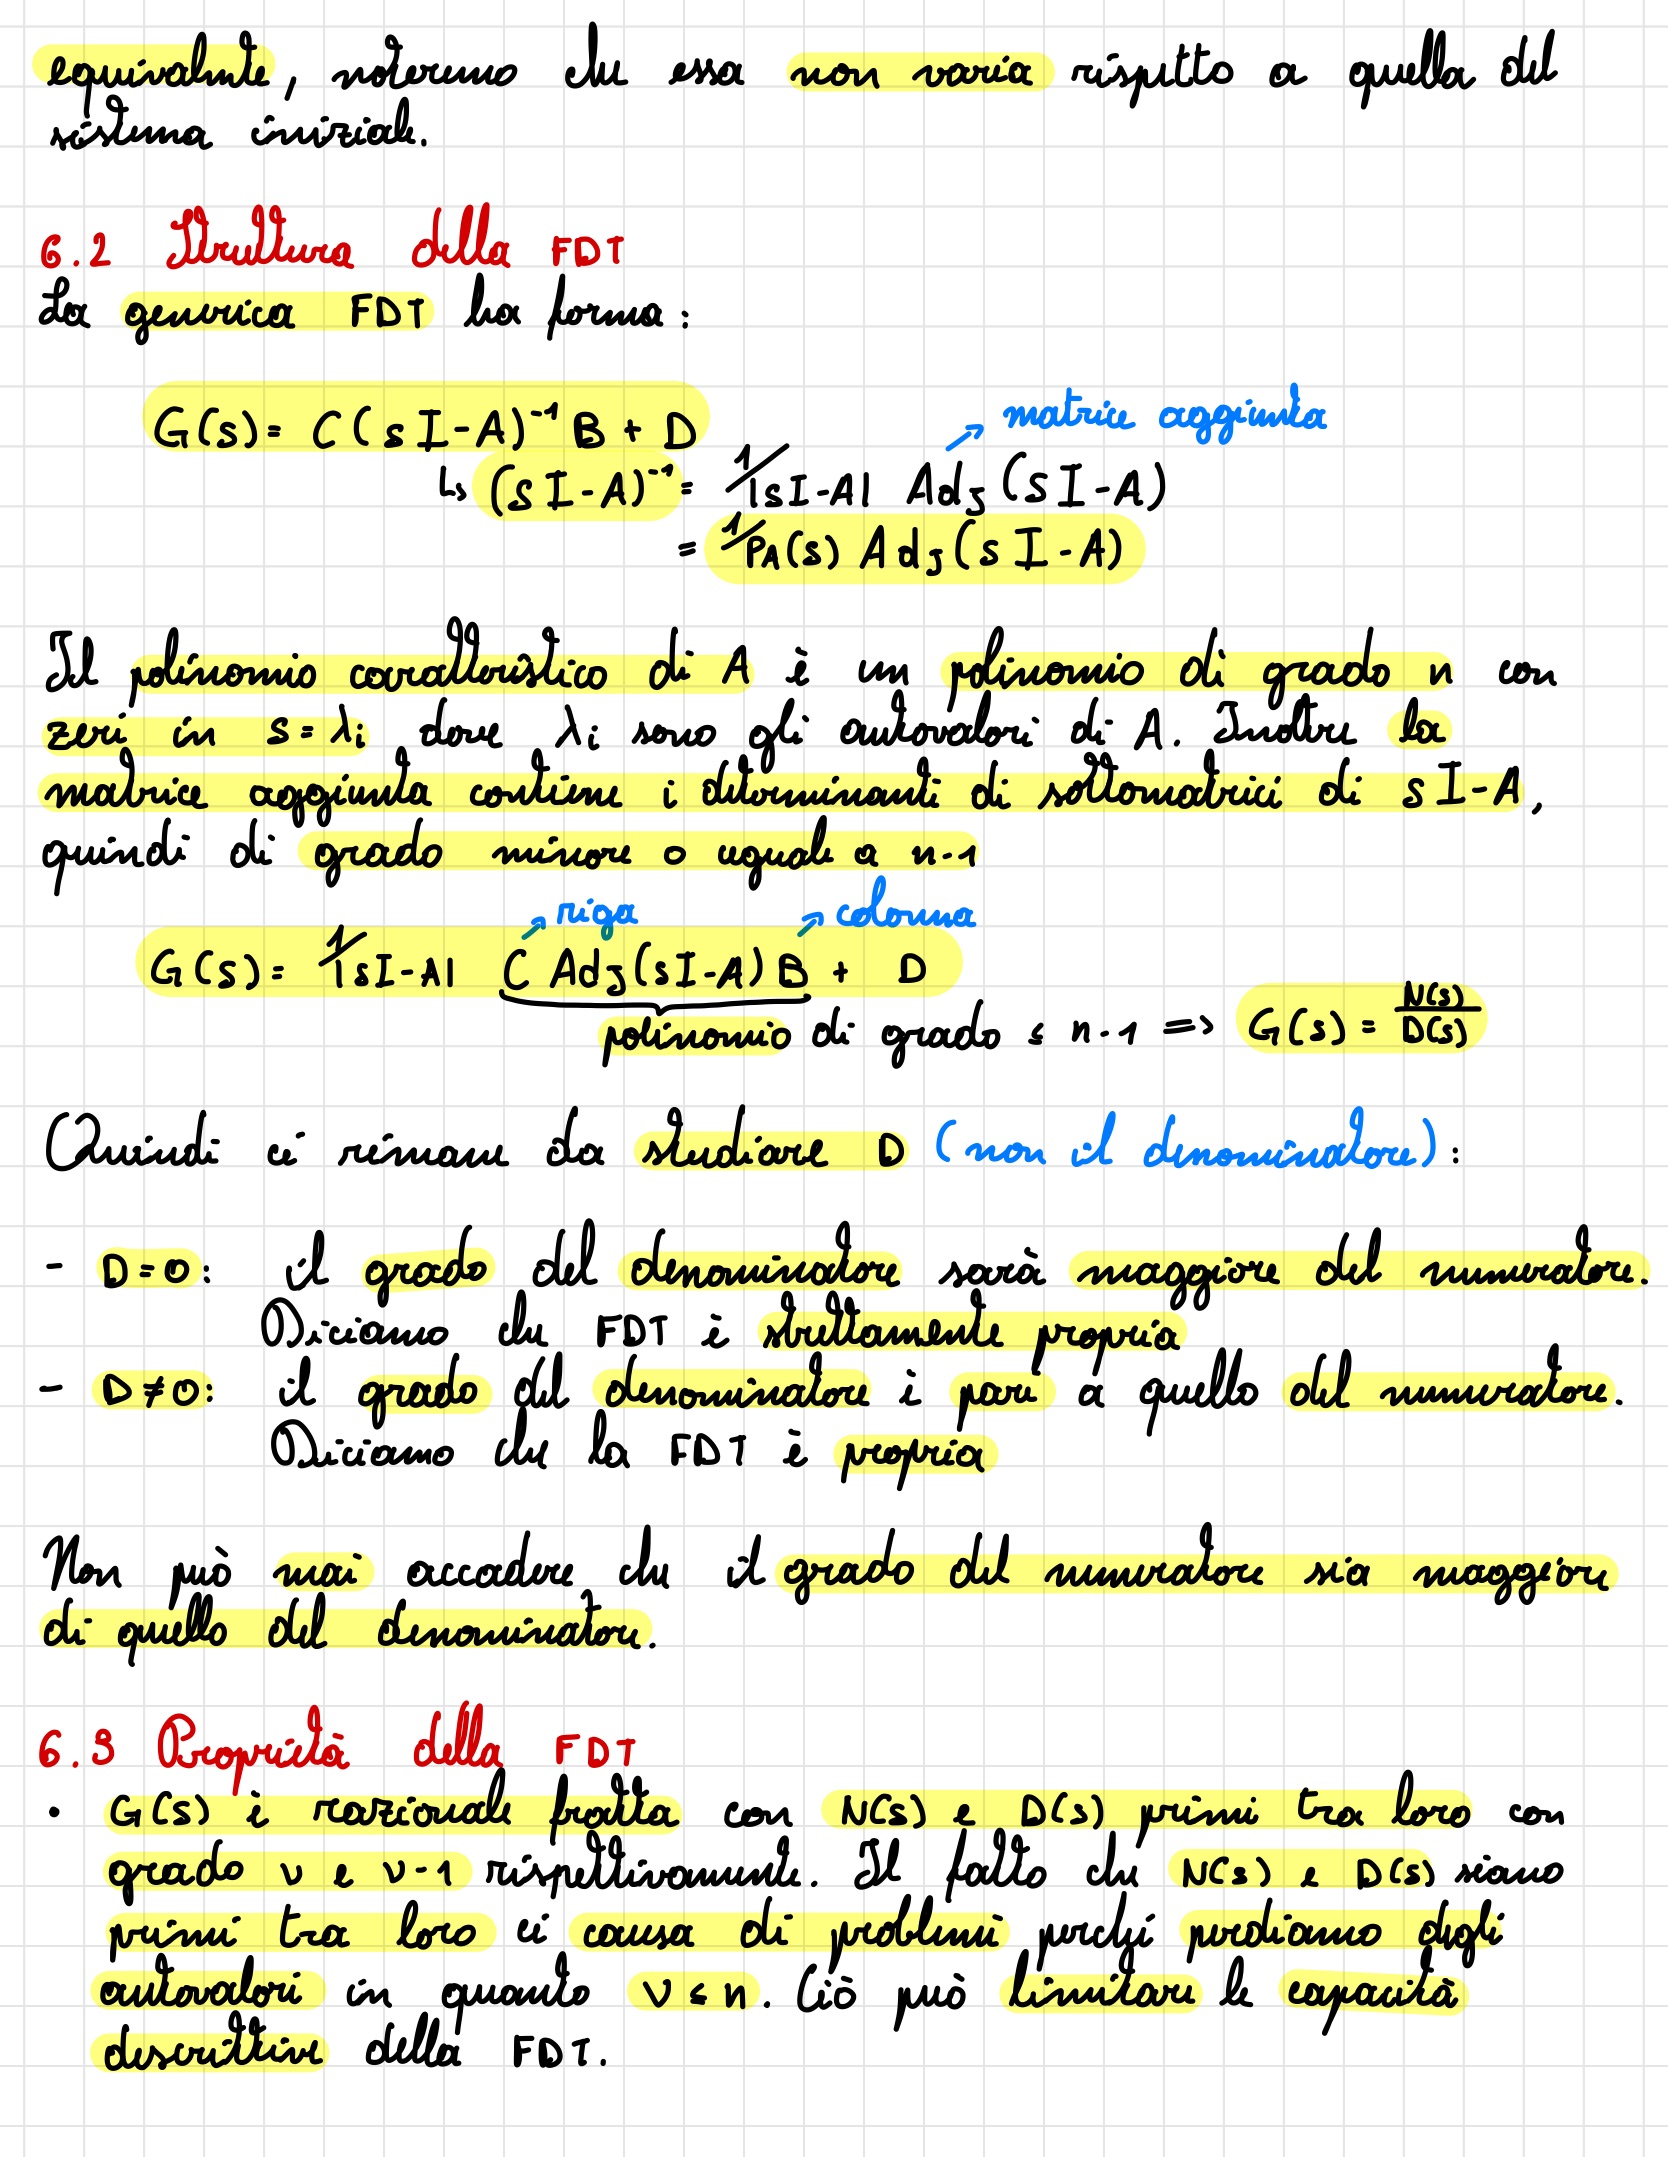 equivalente, noteremo che essa non varia rispetto a quella del
sistema iniziale.
6.2 Struttura della FDT
La generica FDT ha forma:
G(s) = C(sI-A)⁻¹B + D
matrice aggiunta
↳ (sI-A)⁻¹ = 1/|sI-A| Adj(sI-A)
= 1/PA(s) Adj(sI-A)
Il polinomio caratteristico di A è un polinomio di grado n con
zeri in s=λi dove λi sono gli autovalori di A. Inoltre la
matrice aggiunta contiene i determinanti di sottomatrici di sI-A,
quindi di grado minore o uguale a n-1
riga colonna
G(s) = 1/|sI-A| C Adj(sI-A)B + D
polinomio di grado ≤ n-1 => G(s) = N(s)/D(s)
Quindi ci rimane da studiare D (non il denominatore):
- D=0: il grado del denominatore sarà maggiore del numeratore.
Diciamo che FDT è strettamente propria
- D≠0: il grado del denominatore è pari a quello del numeratore.
Diciamo che la FDT è propria
Non può mai accadere che il grado del numeratore sia maggiore
di quello del denominatore.
6.3 Proprietà della FDT
• G(s) è razionale fratta con N(s) e D(s) primi tra loro con
grado ν e ν-1 rispettivamente. Il fatto che N(s) e D(s) siano
primi tra loro ci causa di problemi perché perdiamo degli
autovalori in quanto ν≤n. Ciò può limitare le capacità
descrittive della FDT.